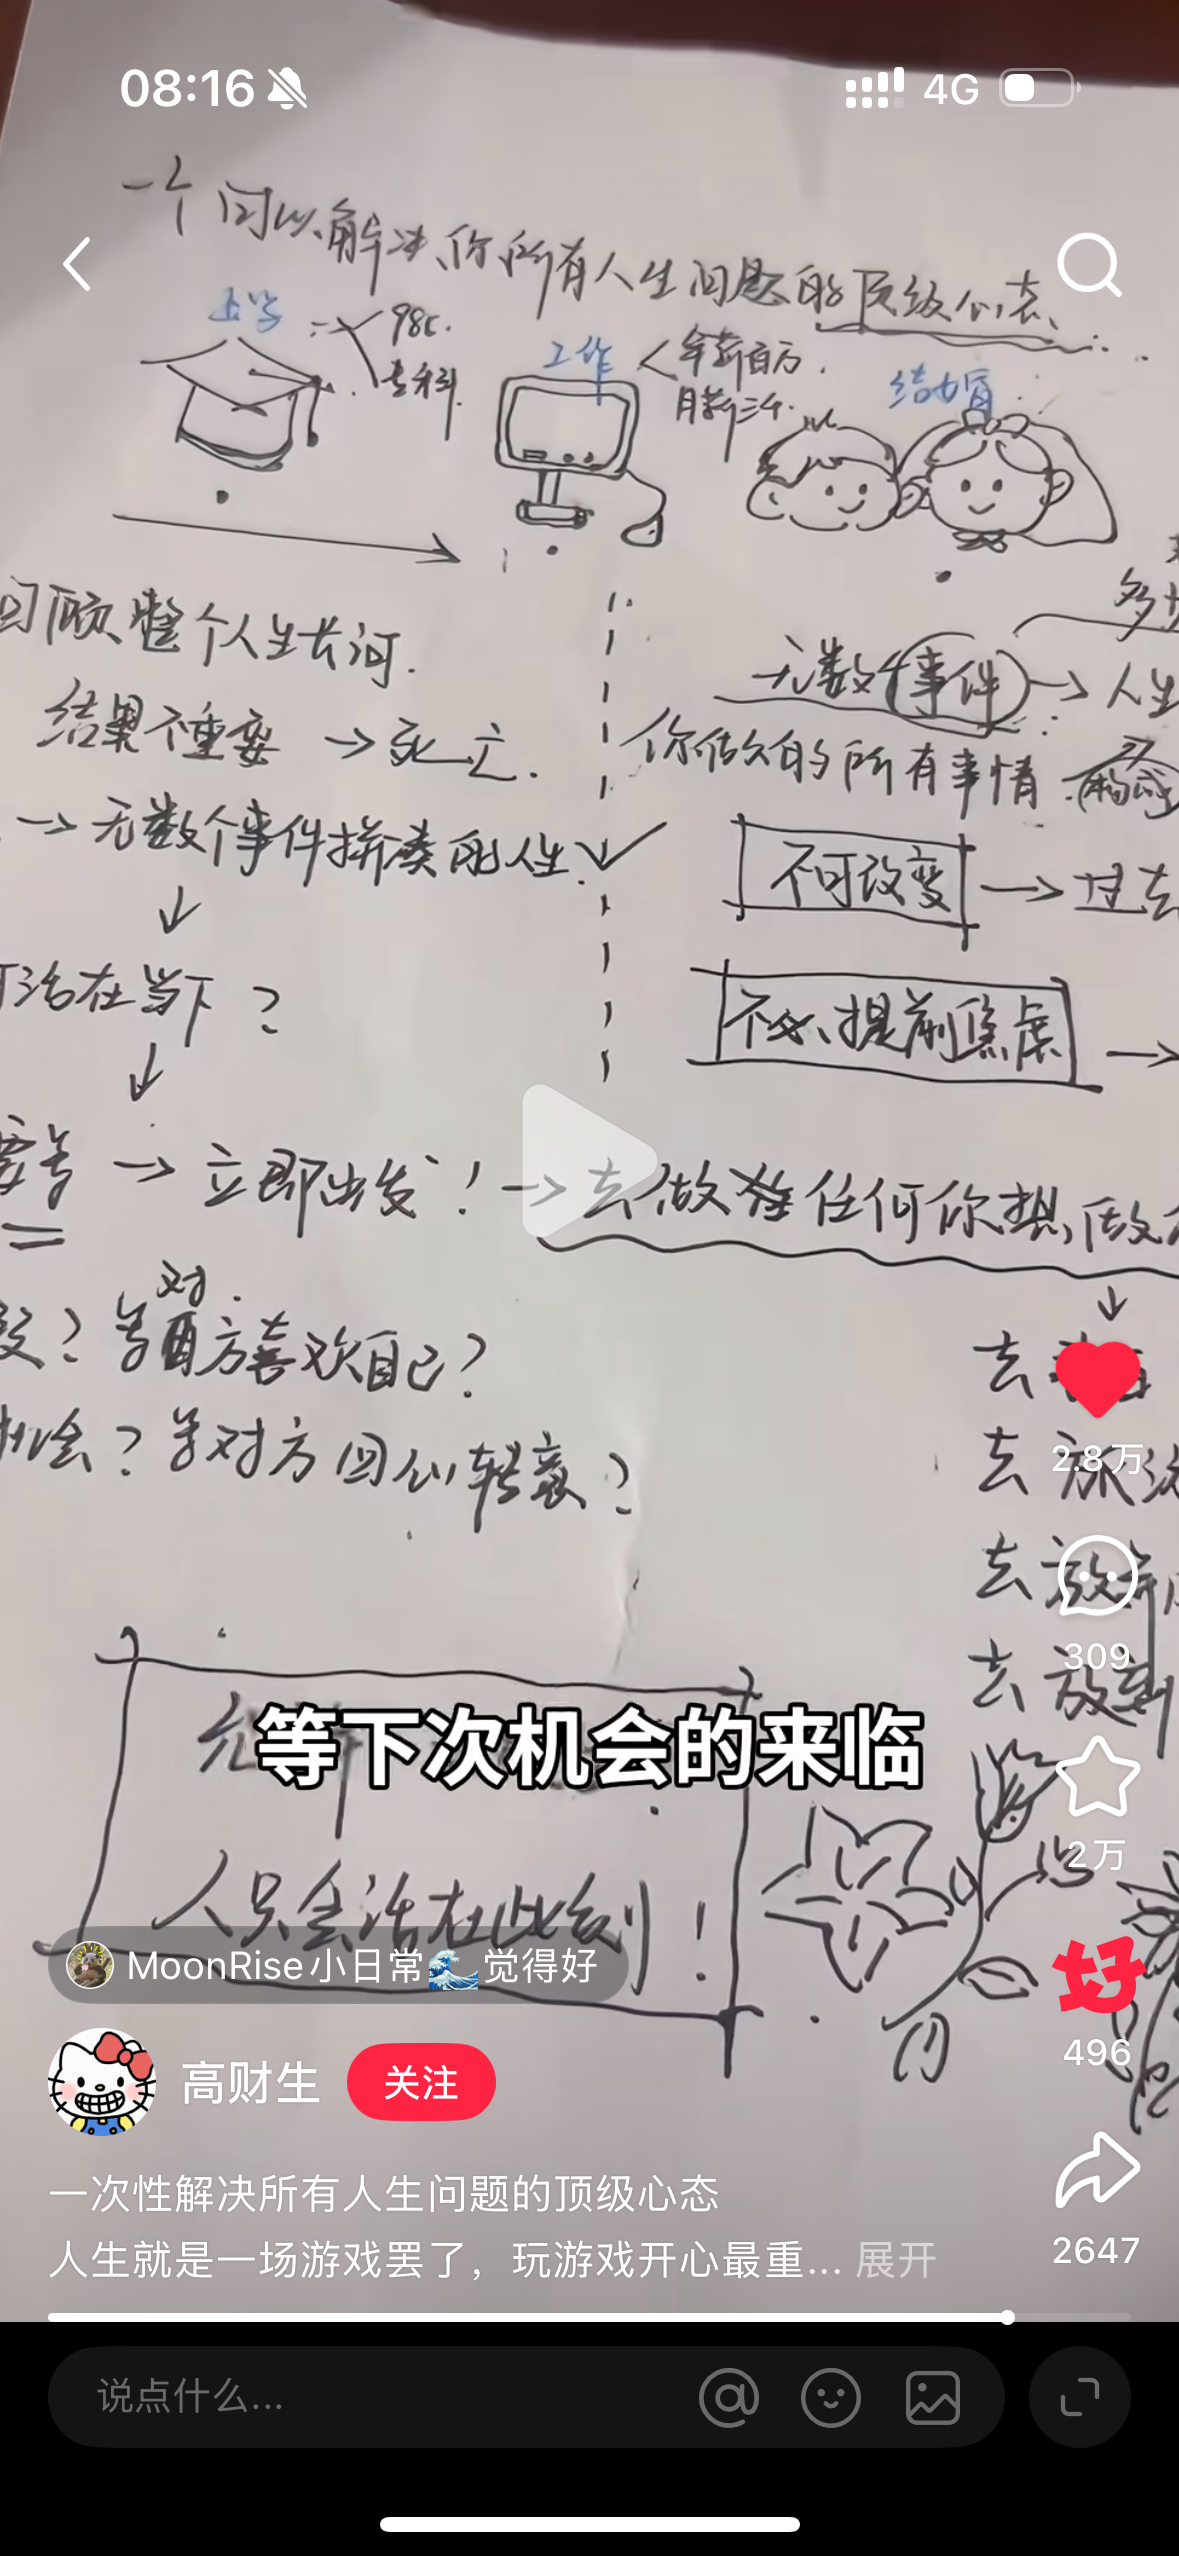 08:16
4G
一个可以解决你所有人生问题的顶级心态
上学
985.
专科.
工作
年薪百万.
月薪三千.
结婚
回顾整个人生长河.
结果不重要 → 死亡.
→ 无数个事件拼凑的人生.
活在当下?
无数个事件 → 人生
你做的所有事情
不可改变 → 过去
不必提前焦虑 →
要等 → 立即出发! → 去做任何你想做
? 等对方喜欢自己?
机会? 等对方回心转意?
去
去旅游
去放弃
去放
等下次机会的来临
人只会活在此刻!
MoonRise小日常🌊觉得好
高财生
关注
一次性解决所有人生问题的顶级心态
人生就是一场游戏罢了，玩游戏开心最重... 展开
2.8万
309
2万
好
496
2647
说点什么...